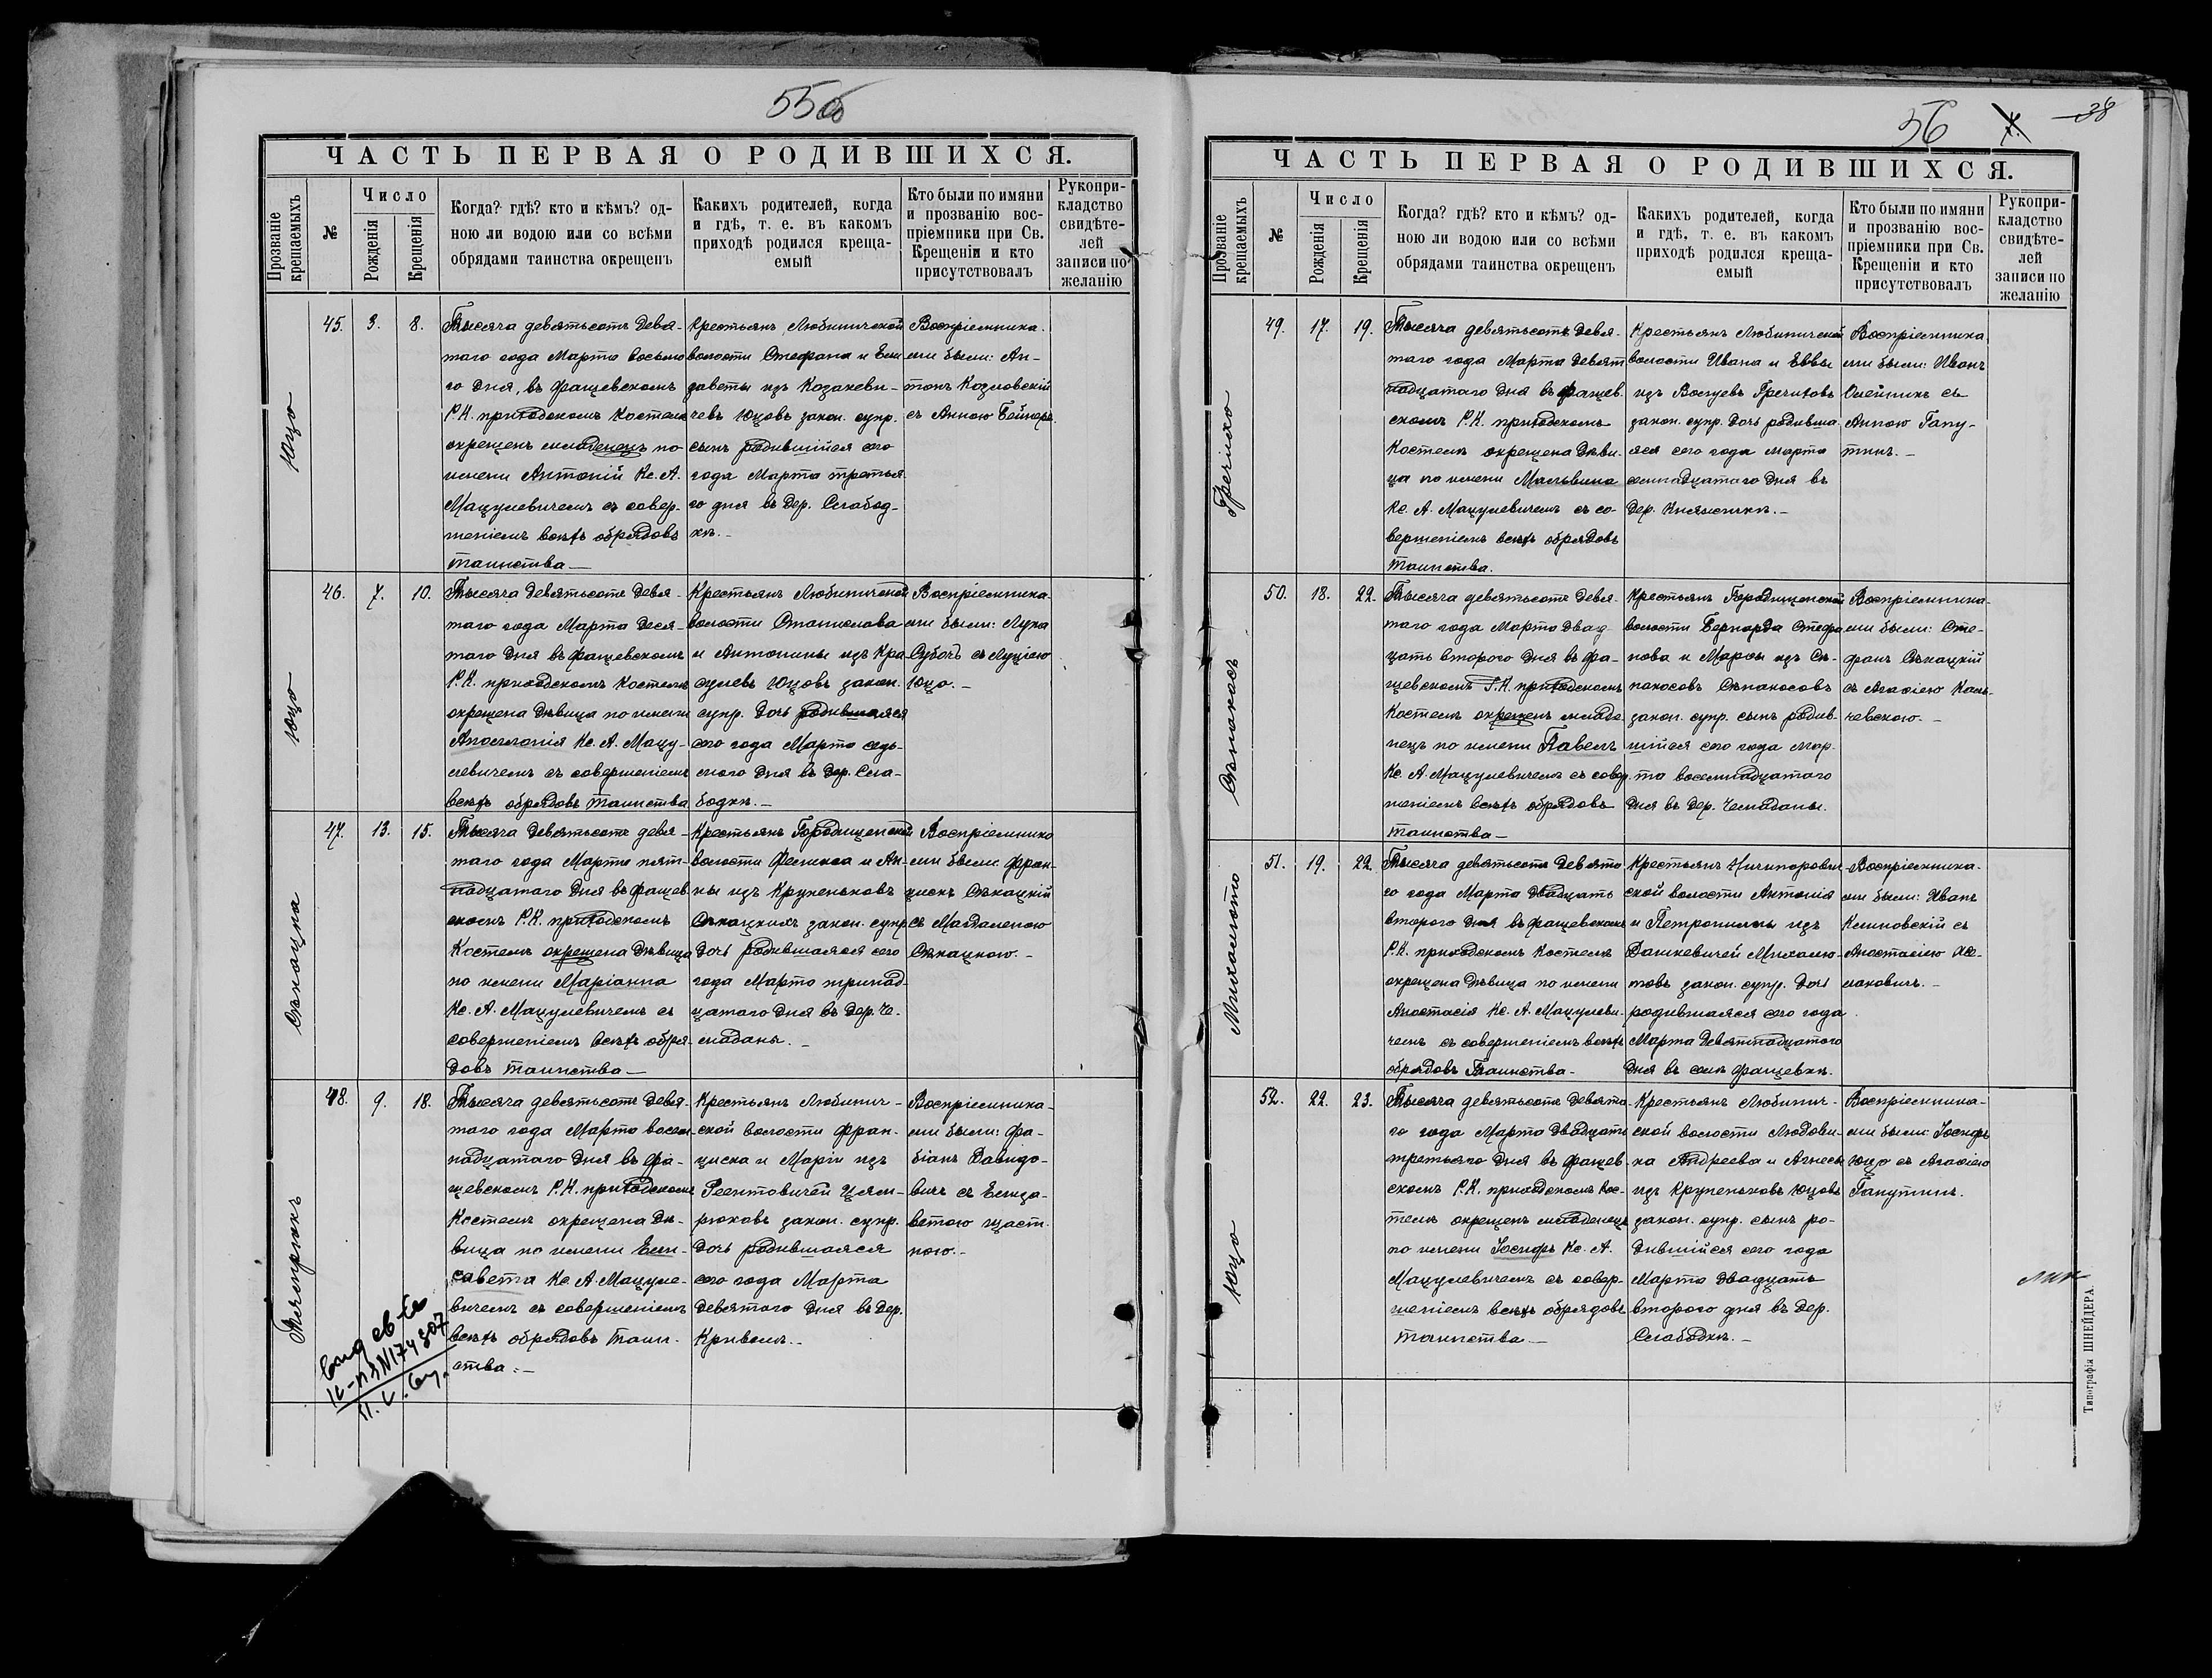 55об
ЧАСТЬ ПЕРВАЯ О РОДИВШИХСЯ.
Прозваніе крещаемыхъ
№
Число
Рожденія
Крещенія
Когда? гдѣ? кто и кѣмъ? од-
ною ли водою или со всѣми
обрядами таинства окрещенъ
Какихъ родителей, когда
и гдѣ, т. е. въ какомъ
приходѣ родился креща-
емый
Кто были по имяни
и прозванію вос-
пріемники при Св.
Крещеніи и кто
присутствовалъ
Рукопри-
кладство
свидѣте-
лей
записи по
желанію
Юцо
45.
3.
8.
Тысяча девятьсотъ девя-
таго года Марта восьмо
го дня, въ Фащевскомъ
Р.К. приходскомъ костелѣ
окрещенъ младенецъ по
имени Антоній Кс. А.
Мацулевичемъ съ совер-
шеніемъ всѣхъ обрядовъ
таинства
Крестьянъ Любиничской
волости Стефана и Ели
заветы изъ Козакеви-
чевъ Юцовъ закон. супр.
сынъ родившійся сего
года Марта третья
го дня въ дер. Слабод-
кѣ.
Воспріемника
ми были: Ан-
тонъ Козловскій
съ Анною Бейнаръ.
Юцо
46.
7.
10.
Тысяча девятьсотъ девя-
таго года Марта деся-
таго дня въ Фащевскомъ
Р.К. приходскомъ костелѣ
окрещена дѣвица по имени
Аполлонія Кс. А. Мацу-
левичемъ съ совершеніемъ
всѣхъ обрядовъ таинства
Крестьянъ Любиничской
волости Станислава
и Антонины изъ Кра-
сулевъ Юцовъ закон.
супр. дочь родившаяся
сего года Марта седь-
мого дня въ дер. Сла-
бодкѣ.
Воспріемника-
ми были: Лука
Субочъ съ Луціею
Юцо.
Сѣкацка
47.
13.
15.
Тысяча девятьсотъ девя-
таго года Марта пят-
надцатаго дня въ Фащев
скомъ Р.К. приходскомъ
Костелѣ окрещена дѣвица
по имени Маріанна
Кс. А. Мацулевичемъ съ
совершеніемъ всѣхъ обря-
довъ таинства
Крестьянъ Городищенской
волости Феликса и Ан-
ны изъ Крупеньковъ
Сѣкацкихъ закон. супр.
дочь родившаяся сего
года Марта тринад-
цатаго дня въ дер. Че-
маданы.
Воспріемника
ми были Фран-
цискъ Сѣкацкій
съ Магдаленою
Сѣкацкою.
48.
9.
18.
Тысяча девятьсотъ девя-
таго года Марта восем-
надцатаго дня въ Фа-
щевскомъ Р.К. приходскомъ
Костелѣ окрещена дѣ-
вица по имени Ели-
савета Кс. А. Мацуле-
вичемъ съ совершеніемъ
всѣхъ обрядовъ таин-
ства.
Крестьянъ Любинич-
ской волости Фран-
циска и Маріи изъ
закон. супр.
дочь родившаяся
сего года Марта
девятаго дня въ дер.
Воспріемника-
ми были: Фа-
біанъ Давидо-
вичъ съ Елиза-
ветою Щаст-
ною.
56
38
ЧАСТЬ ПЕРВАЯ О РОДИВШИХСЯ.
Прозваніе крещаемыхъ
№
Число
Рожденія
Крещенія
Когда? гдѣ? кто и кѣмъ? од-
ною ли водою или со всѣми
обрядами таинства окрещенъ
Какихъ родителей, когда
и гдѣ, т. е. въ какомъ
приходѣ родился креща-
емый
Кто были по имяни
и прозванію вос-
пріемники при Св.
Крещеніи и кто
присутствовалъ
Рукопри-
кладство
свидѣте-
лей
записи по
желанію
49.
17.
19.
Тысяча девятьсотъ девя-
таго года Марта девят
надцатаго дня въ Фащев-
скомъ Р.К. приходскомъ
Костелѣ окрещена дѣви-
ца по имени Мальвина
Кс. А. Мацулевичемъ съ со-
вершеніемъ всѣхъ обрядовъ
таинства.
Крестьянъ Любиничской
волости Ивана и Еввы
изъ
закон. супр. дочь родивша-
яся сего года марта
семнадцатаго дня въ
дер. Княжичкѣ.
Воспріемника
ми были: Иванъ
Олейникъ съ
Анною Гапу-
тинъ.
50.
18.
22.
Тысяча девятьсотъ девя-
таго года Марта двад-
цать второго дня въ Фа-
щевскомъ Р.К. приходскомъ
Костелѣ окрещенъ младе
нецъ по имени Павелъ
Кс. А. Мацулевичемъ съ совер-
шеніемъ всѣхъ обрядовъ
таинства
Крестьянъ Городищенской
волости Бернарда Стефа
нова и Марсы изъ Сѣ-
накосовъ Сѣнакосовъ
закон. супр. сынъ родив-
шійся сего года мар-
та восемнадцатаго
дня въ дер. Чемаданы.
Воспріемника-
ми были: Сте-
фанъ Сѣкацкій
съ Агафіею Каль-
чевскою.
Михалюто
51.
19.
22.
Тысяча девятьсотъ девята
го года Марта двадцать
второго дня въ Фащевскомъ
Р.К. приходскомъ костелѣ
окрещена дѣвица по имени
Анастасія Кс. А. Мацулеви-
чемъ съ совершеніемъ всѣхъ
обрядовъ Таинства
Крестьянъ Ничипорович-
ской волости Антонія
и Петронилы изъ
Дашкевичей Михалю-
товъ закон. супр. дочь
родившаяся сего года
Марта девятнадцатого
дня въ селѣ Фащевкѣ.
Воспріемника-
ми были: Иванъ
Климовскій съ
Анастасіею
Юцо
52.
22.
23.
Тысяча девятьсотъ девята-
го года Марта двадцать
третьяго дня въ Фащев-
скомъ Р.К. приходскомъ Кос-
телѣ окрещенъ младенецъ
по имени Іосифъ Кс. А.
Мацулевичемъ съ совер-
шеніемъ всѣхъ обрядовъ
таинства
Крестьянъ Любинич-
ской волости Людови-
ка Андреева и Агнесы
изъ Крупеньковъ Юцовъ
закон. супр. сынъ ро-
дившійся сего года
Марта двадцать
второго дня въ дер.
Слабодкѣ.
Воспріемника-
ми были Іосифъ
Юцо съ Агафіею
Гапутинъ.
Типографія ШНЕЙДЕРА.